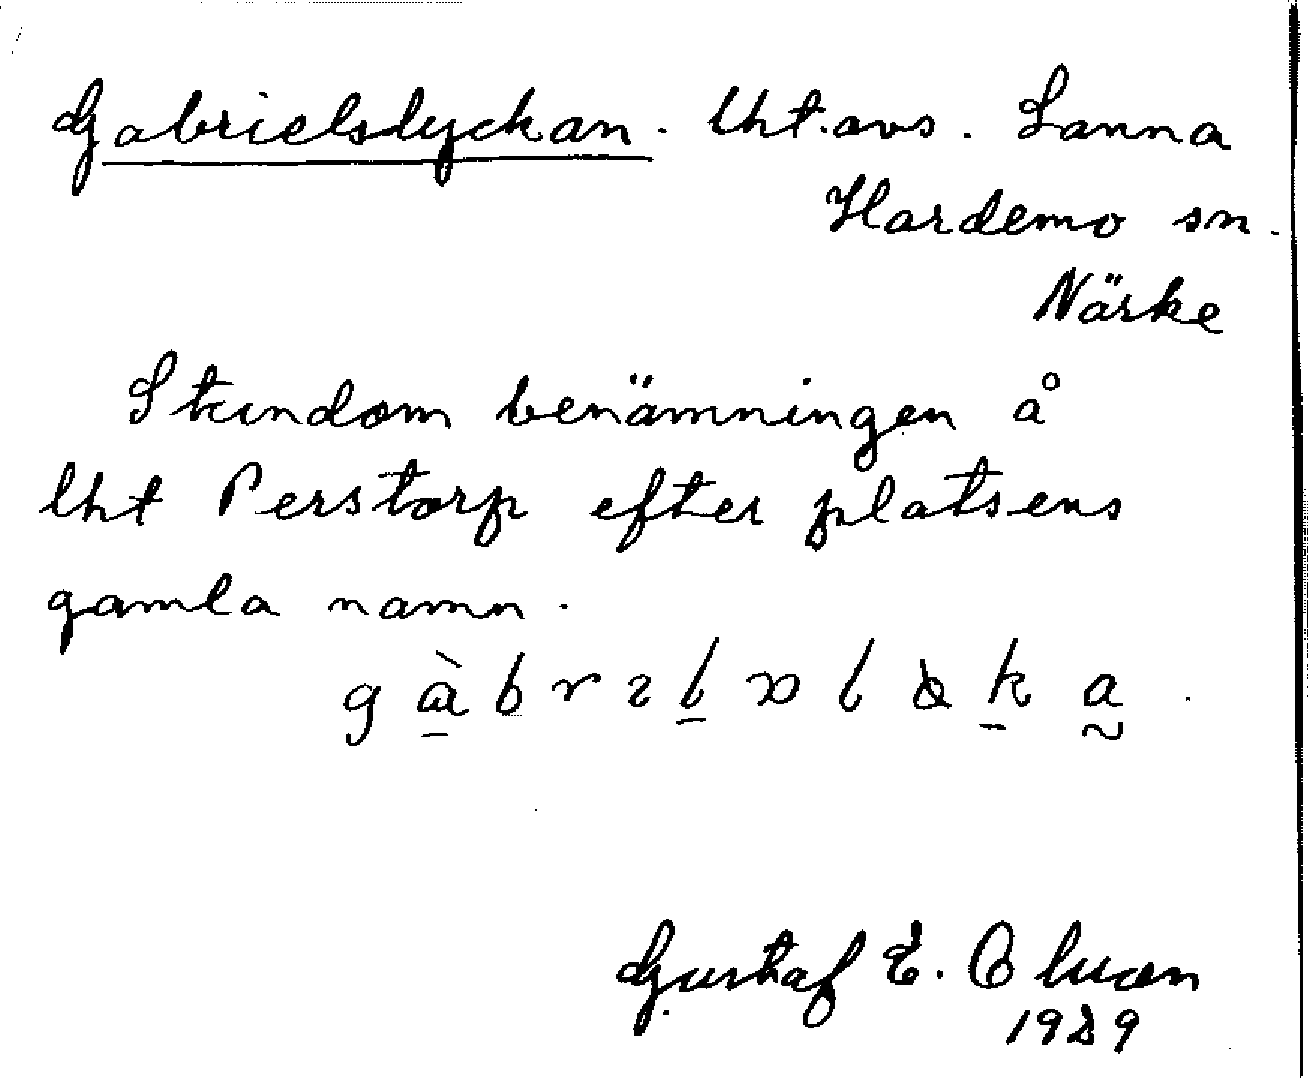 Gabrielslyckan. Lht. avs. Sanna
Hardemo sn.
Närke
Stundom benämningen å
lht Perstorp efter platsens
gamla namn.
Gustaf E.
1929